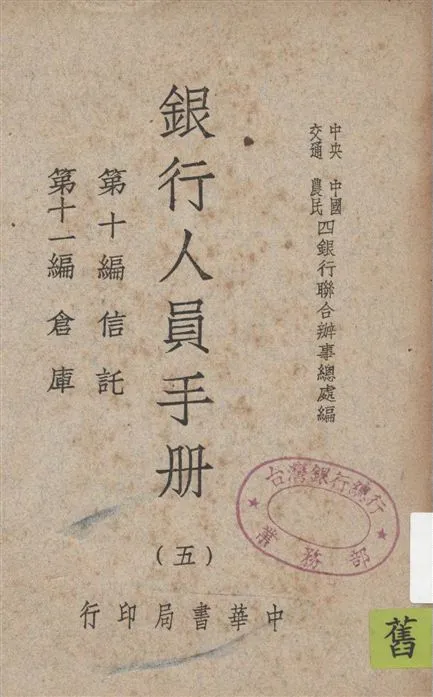 中央 中國
交通 農民
四銀行聯合辦事總處編
銀行人員手册
（五）
第十編 信託
第十一編 倉庫
中華書局印行
台灣銀行總行
業務部
舊